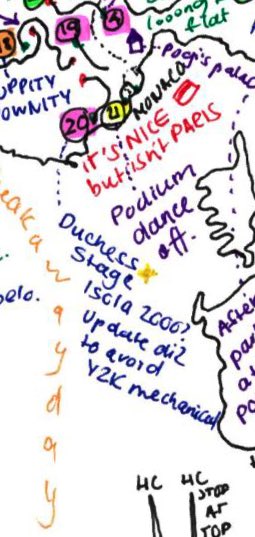 19
3
1000ng
flat
18
Poggi's palac
UPPITY
OWNITY
MONACO
20
21
IT'S NICE
but isn't PARIS
Podium
dance
off.
eakaway day
Duchess
Stage
Isola 2000?
Update di2
to avoid
Y2K mechanical
elo.
After
par
a
po
HC
HC
STOP
AT
TOP